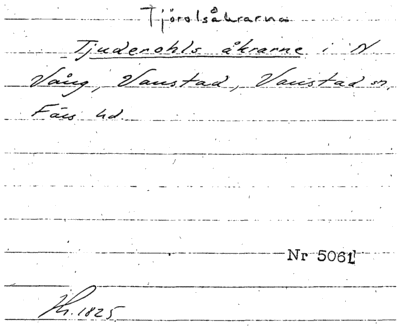 Tjörolsåkrarna
Tjuderohls åkrarne i N
Vång, Vanstad, Vanstad sn,
Färs hd.
Nr 5061
Kr. 1825